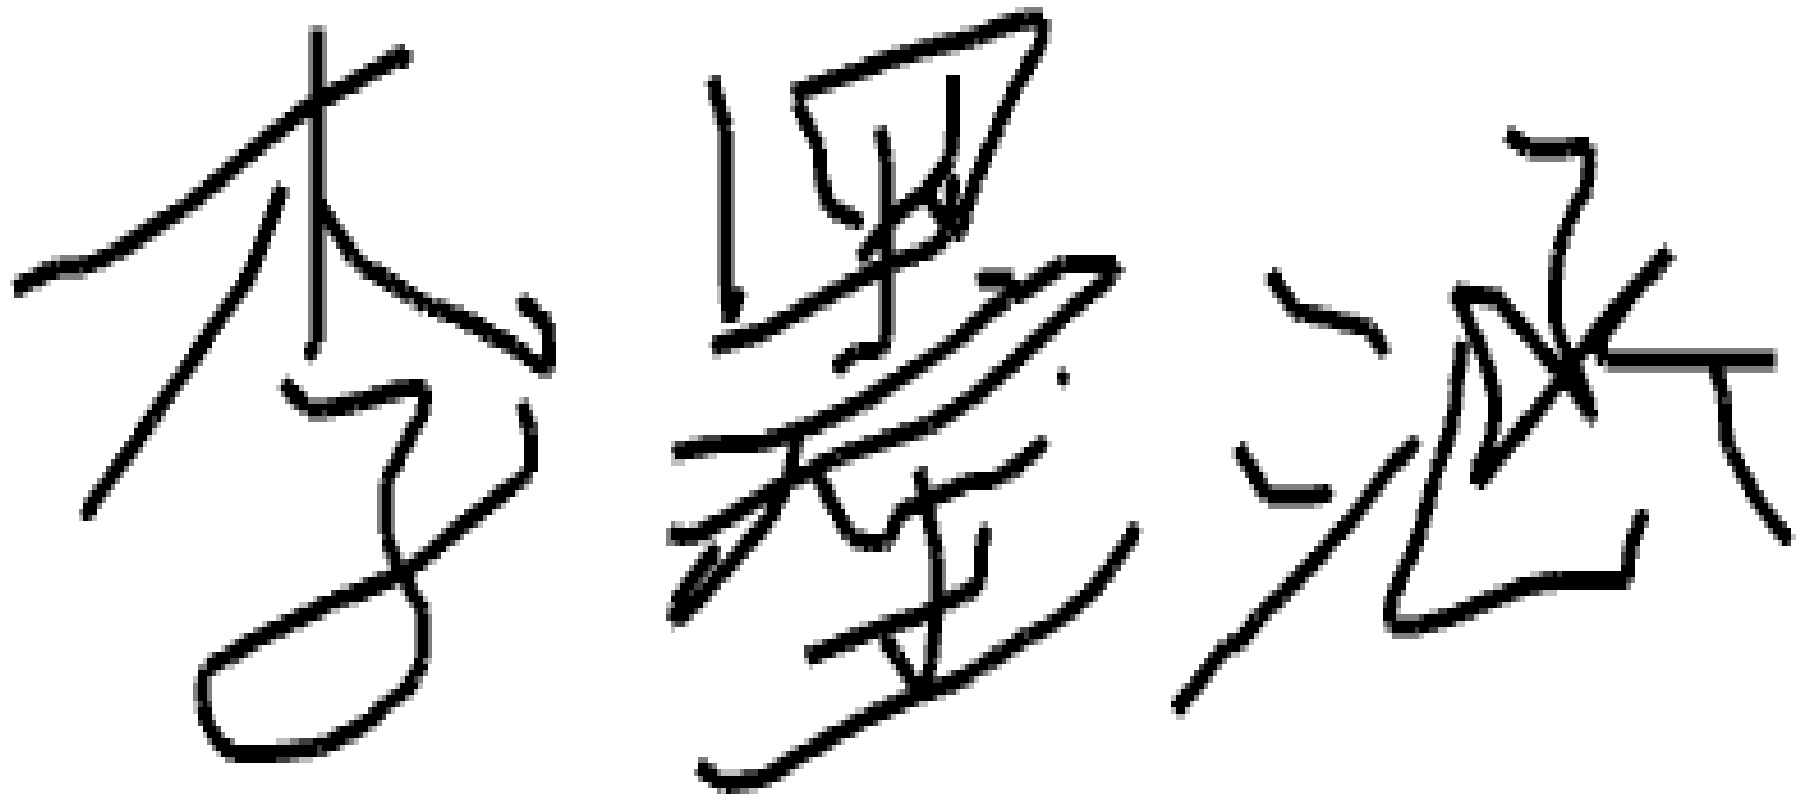 李墨涵